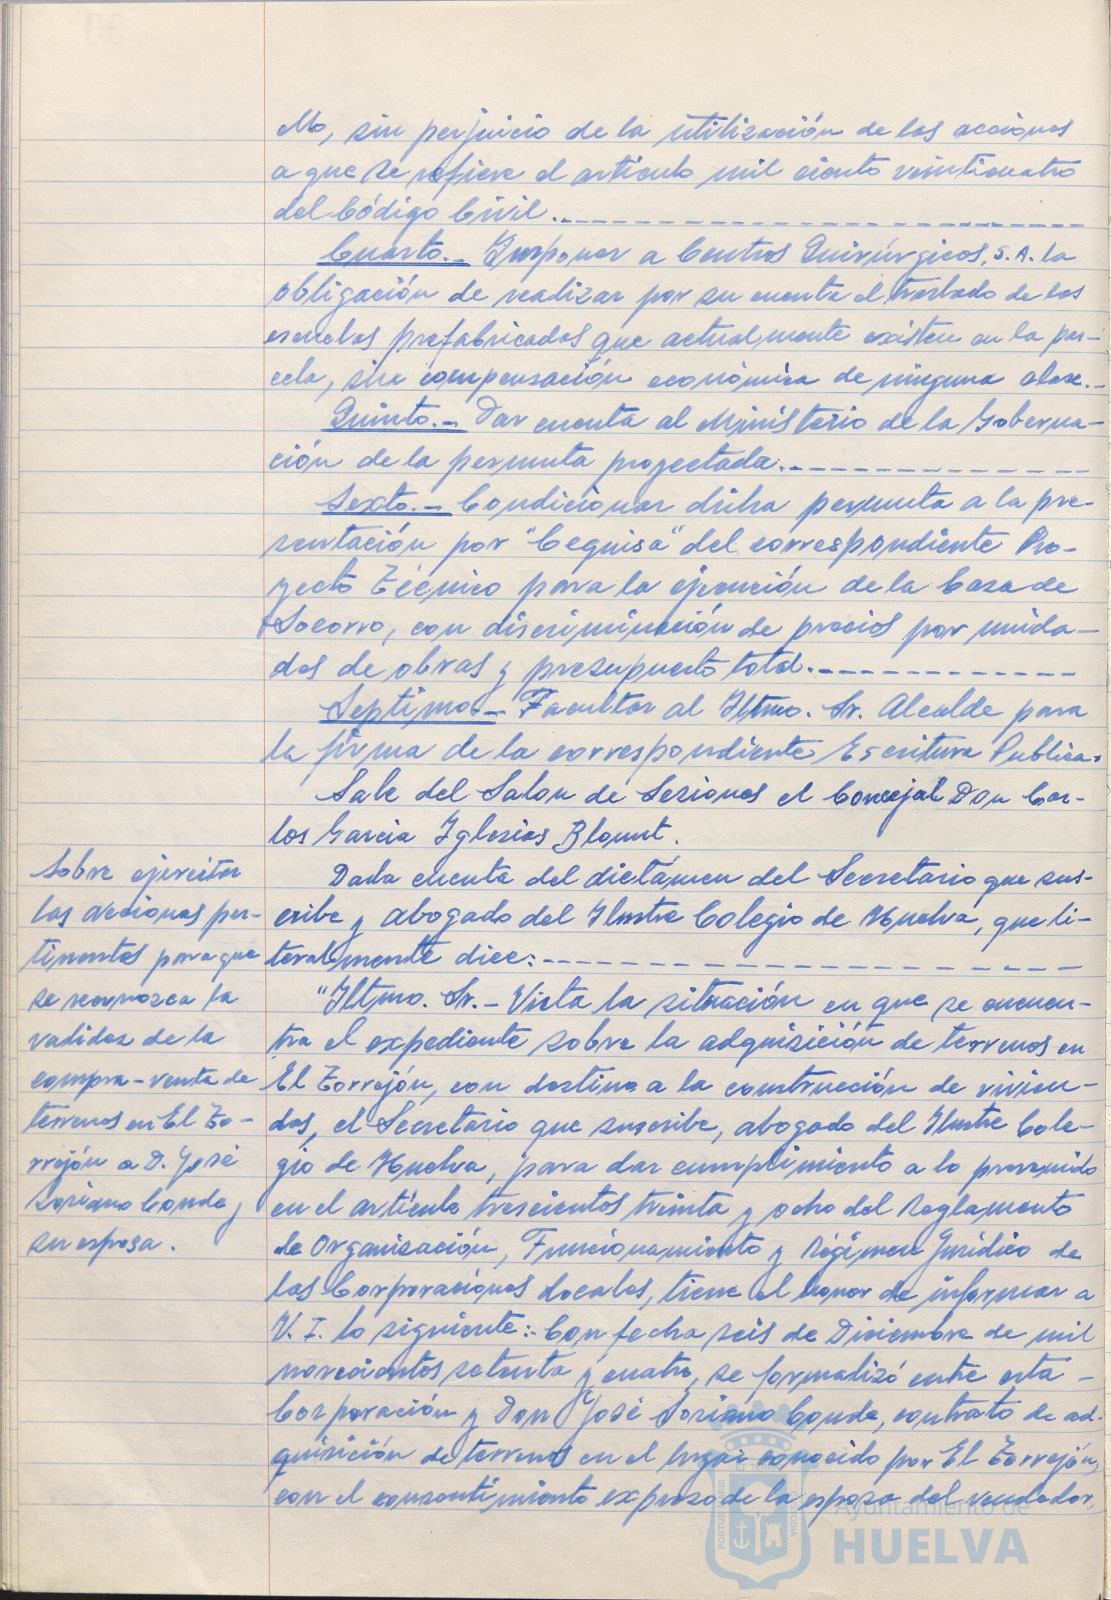 llo, sin perjuicio de la utilización de las acciones
a que se refiere el artículo mil ciento veinticuatro
del Código Civil.
Cuarto.- Imponer a Centros Quirúrgicos, S.A. la
obligación de realizar por su cuenta el traslado de las
escuelas prefabricadas que actualmente existen en la par-
cela, sin compensación económica de ninguna clase.-
Quinto.- Dar cuenta al Ministerio de la Goberna-
ción de la permuta proyectada.
Sexto.- Condicionar dicha permuta a la pre-
sentación por "Cequisa" del correspondiente Pro-
yecto Técnico para la ejecución de la Casa de
Socorro, con discriminación de precios por unida-
des de obras y presupuesto total.
Septimo.- Facultar al Iltmo. Sr. Alcalde para
la firma de la correspondiente Escritura Publica.
Sale del Salon de Sesiones el Concejal Don Car-
los Garcia Iglesias Blount.
Sobre ejercitar
las acciones per-
tinentes para que
se reconozca la
validez de la
compra-venta de
terrenos en El To-
rrejón a D. José
Soriano Conde y
su esposa.
Dada cuenta del dictámen del Secretario que sus-
cribe y abogado del Ilustre Colegio de Huelva, que li-
teralmente dice:
"Iltmo. Sr.- Vista la situación en que se encuen-
tra el expediente sobre la adquisición de terrenos en
El Torrejón, con destino a la construcción de vivien-
das, el Secretario que suscribe, abogado del Ilustre Cole-
gio de Huelva, para dar cumplimiento a lo prevenido
en el artículo trescientos treinta y ocho del Reglamento
de Organización, Funcionamiento y Régimen Jurídico de
las Corporaciones Locales, tiene el honor de informar a
V. I. lo siguiente: Con fecha seis de Diciembre de mil
novecientos setenta y cuatro, se formalizó entre esta
Corporación y Don José Soriano Conde, contrato de ad-
quisición de terrenos en el lugar conocido por El Torrejón,
con el consentimiento expreso de la esposa del vendedor,
Ayuntamiento de
HUELVA